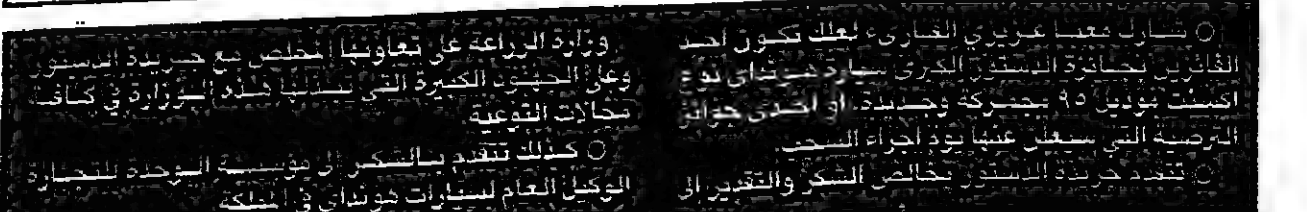 ○ شارك معنا عزيزي القارىء لعلك تكون احد
الفائزين بجائزة الدستور الكبرى سيارة هونداي نوع
اكسنت موديل ٩٥ بجمركه وجديدة، او احدى جوائز
الترضية التي سيعلن عنها يوم اجراء السحب.
○ تتقدم جريدة الدستور بخالص الشكر والتقدير الى
وزارة الزراعة على تعاونها المخلص مع جريدة الدستور
وعلى الجهود الكبيرة التي تبذلها هذه الوزارة في كافة
مجالات التوعية
○ كذلك نتقدم بالشكر الى مؤسسة الوحدة للتجارة
الوكيل العام لسيارات هونداي في المملكة